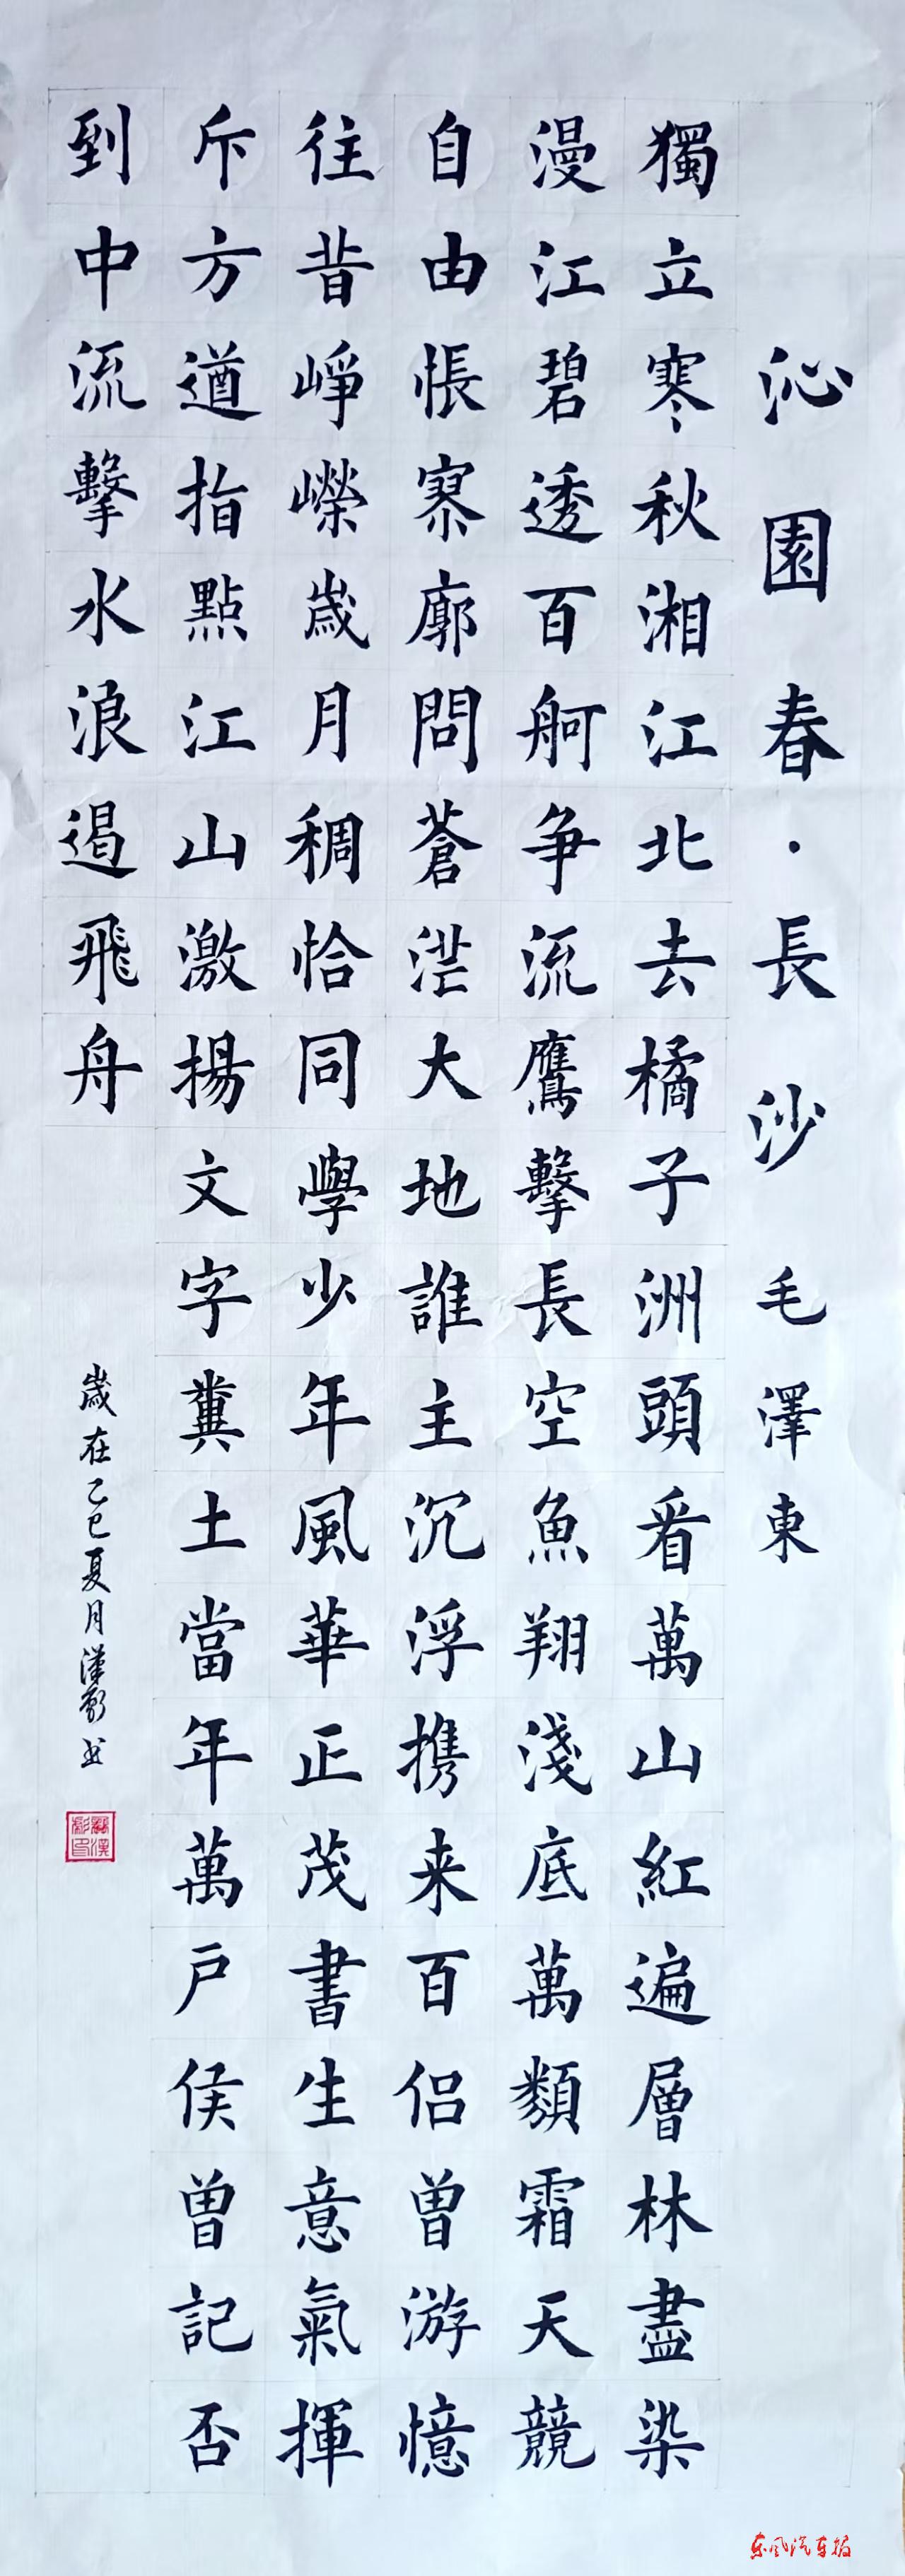 沁園春·長沙 毛澤東
獨立寒秋湘江北去橘子洲頭看萬山紅遍層林盡染
漫江碧透百舸争流鷹擊長空魚翔淺底萬類霜天競
自由悵寥廓問蒼茫大地誰主沉浮携来百侣曾游憶
往昔崢嶸歲月稠恰同學少年風華正茂書生意氣揮
斥方遒指點江山激揚文字糞土當年萬户侯曾記否
到中流擊水浪遏飛舟
歲在乙巳夏月漢书
东风汽车报